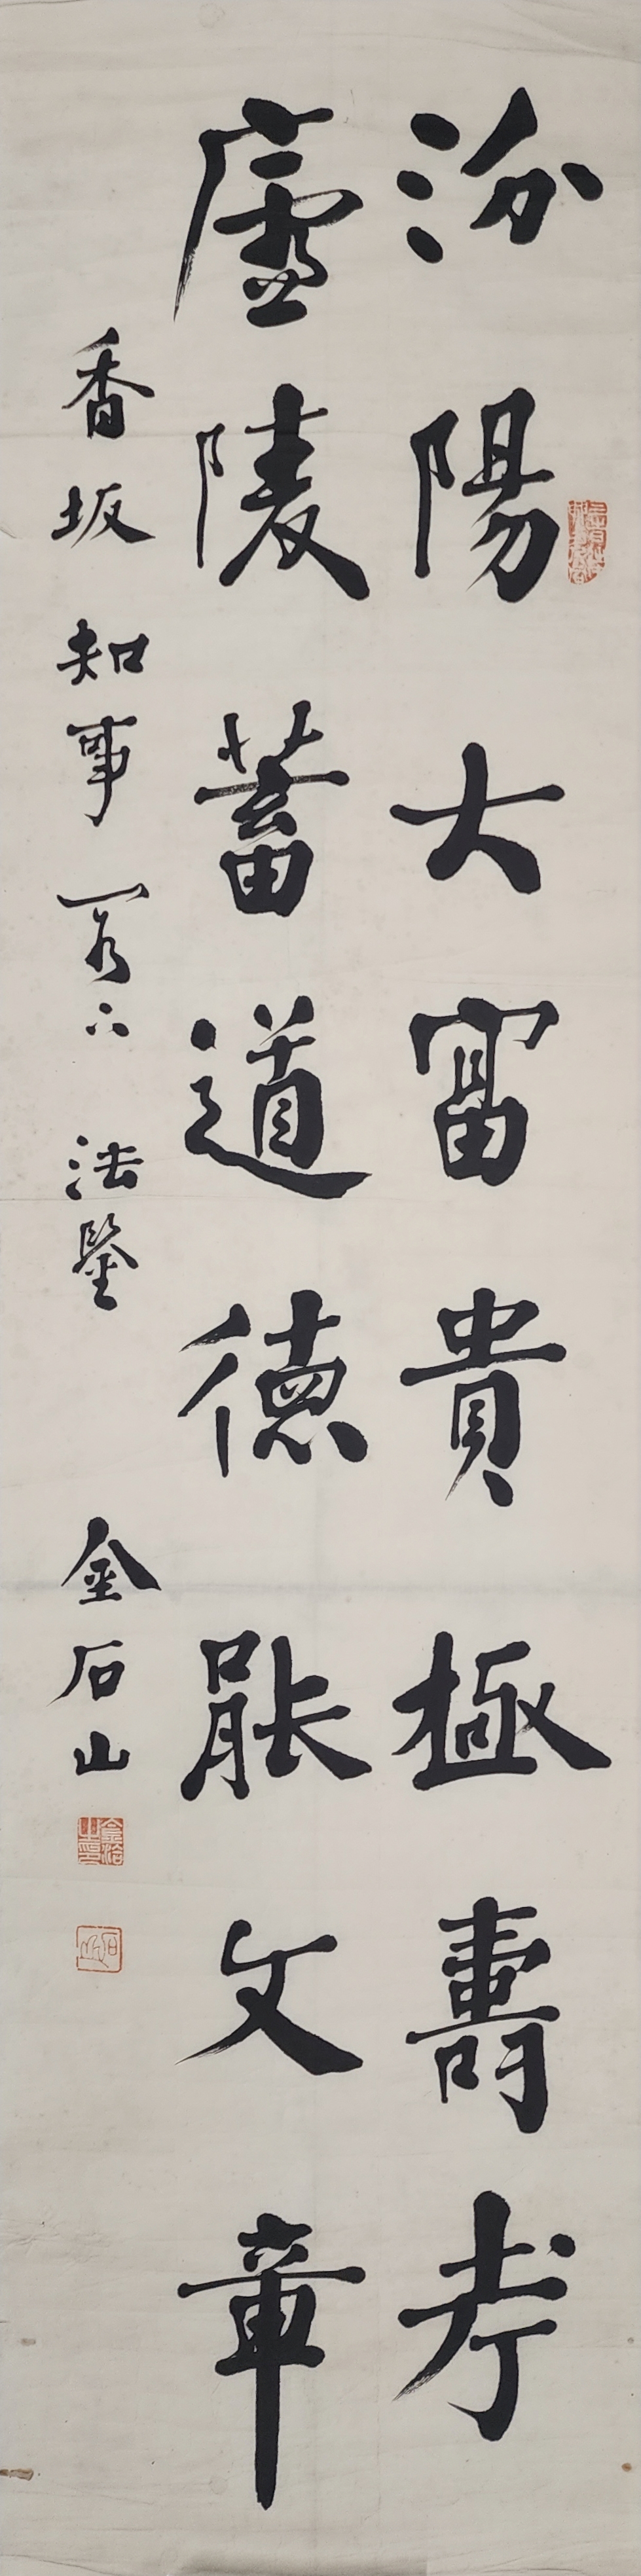 汾陽大富貴極壽考
廬陵蓄道德能文章
香坂知事閣下法鑒
金石山